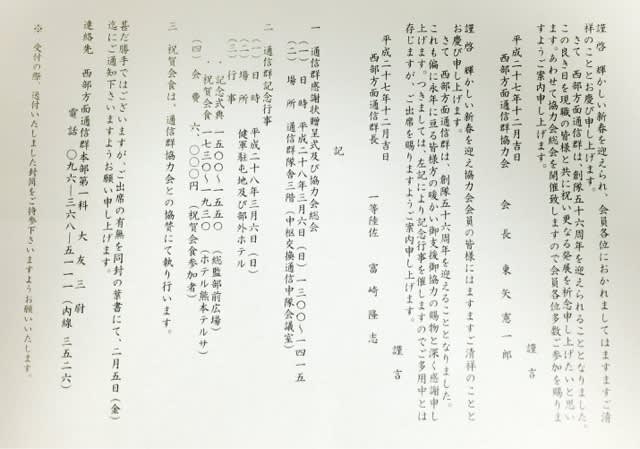 謹啓　輝かしい新春を迎えられ、会員各位におかれましてはますますご清
祥のこととお慶び申し上げます。
さて　西部方面通信群は、創隊五十六周年を迎えられることとなりました。
この良き日を現職の皆様と共に祝い更なる発展を祈念申し上げたいと思い
ます。あわせて協力会総会を開催致しますので会員各位多数ご参加を賜りま
すようご案内申し上げます。
謹言
平成二十七年十二月吉日
西部方面通信群協力会
会長　東矢憲一郎
謹啓　輝かしい新春を迎え協力会会員の皆様にはますますご清祥のことと
お慶び申し上げます。
さて　西部方面通信群は、創隊五十六周年を迎えることとなりました。
これも偏に永年に亘る皆様方の暖かい御支援御協力の賜物と深く感謝申し
上げます。つきましては、左記により記念行事を催しますのでご多用中とは
存じますが、ご出席を賜りますようご案内申し上げます。
謹言
平成二十七年十二月吉日
西部方面通信群長
一等陸佐　富崎隆志
記
一　通信群感謝状贈呈式及び協力会総会
（一）日時　平成二十八年三月六日（日）一三〇〇～一四一五
（二）場所　通信群隊舎三階（中枢交換通信中隊会議室）
二　通信群記念行事
（一）日時　平成二十八年三月六日（日）
（二）場所　健軍駐屯地及び部外ホテル
（三）行事
・記念式典　一五〇〇～（総監部前広場）
・祝賀会食　一七三〇～一九三〇（ホテル熊本テルサ）
（四）会費　六、〇〇〇円（祝賀会食参加者）
三　祝賀会食は、通信群協力会との協賛にて執り行います。
甚だ勝手ではございますが、ご出席の有無を同封の葉書にて、二月五日（金）
迄にご通知下さいますようお願い申し上げます。
連絡先　西部方面通信群本部第一科　大友三尉
電話　〇九六―三六八―五一一一（内線三五二六）
※　受付の際、送付いたしました封筒をご持参下さいますようお願いいたします。